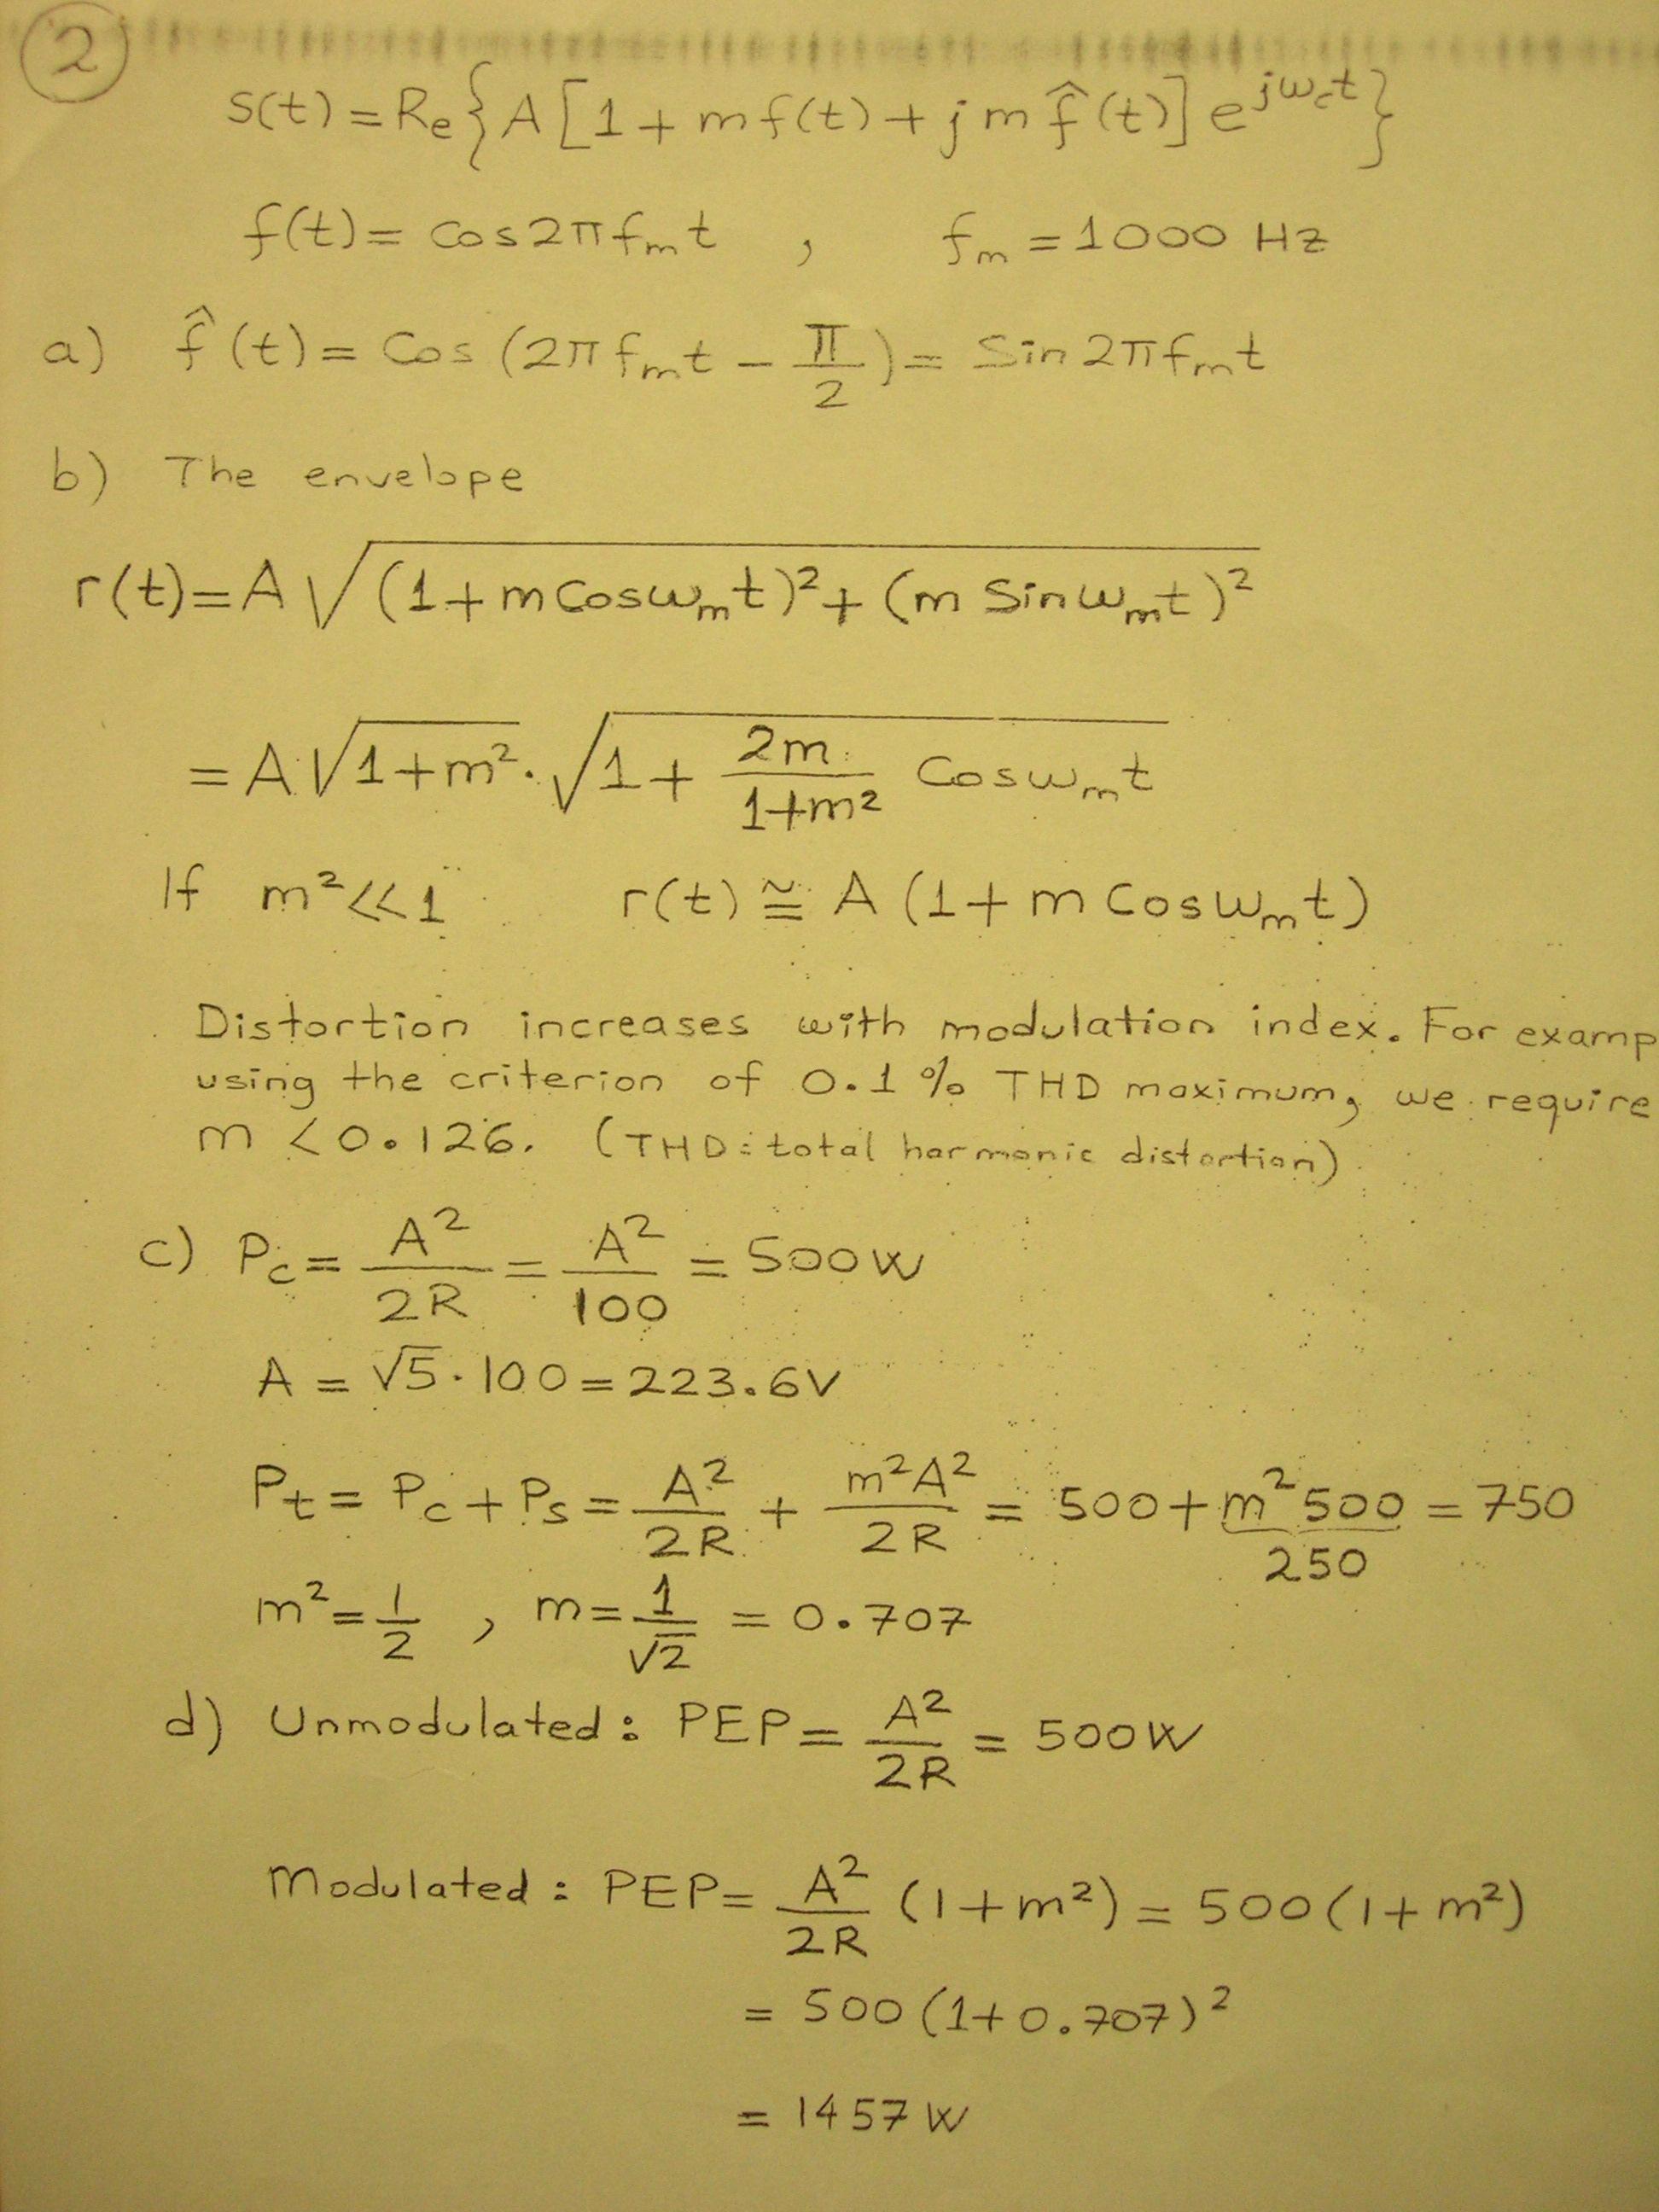 2
s(t) = Re{A[1 + m f(t) + j m f̂(t)] e^{jω_c t}}
f(t) = Cos 2π f_m t , f_m = 1000 Hz
a) f̂(t) = Cos (2π f_m t − π/2) = Sin 2π f_m t
b) The envelope
r(t) = A √((1 + m Cos ω_m t)² + (m Sin ω_m t)²)
= A √(1+m²) · √(1 + 2m/(1+m²) Cos ω_m t)
If m² << 1 r(t) ≅ A (1 + m Cos ω_m t)
Distortion increases with modulation index. For examp
using the criterion of 0.1 % THD maximum, we require
m < 0.126. (THD: total harmonic distortion)
c) P_c = A²/2R = A²/100 = 500 W
A = √5 · 100 = 223.6 V
P_t = P_c + P_s = A²/2R + m²A²/2R = 500 + m² 500 = 750
250
m² = 1/2 , m = 1/√2 = 0.707
d) Unmodulated : PEP = A²/2R = 500 W
Modulated : PEP = A²/2R (1 + m²) = 500 (1 + m²)
= 500 (1 + 0.707)²
= 1457 W